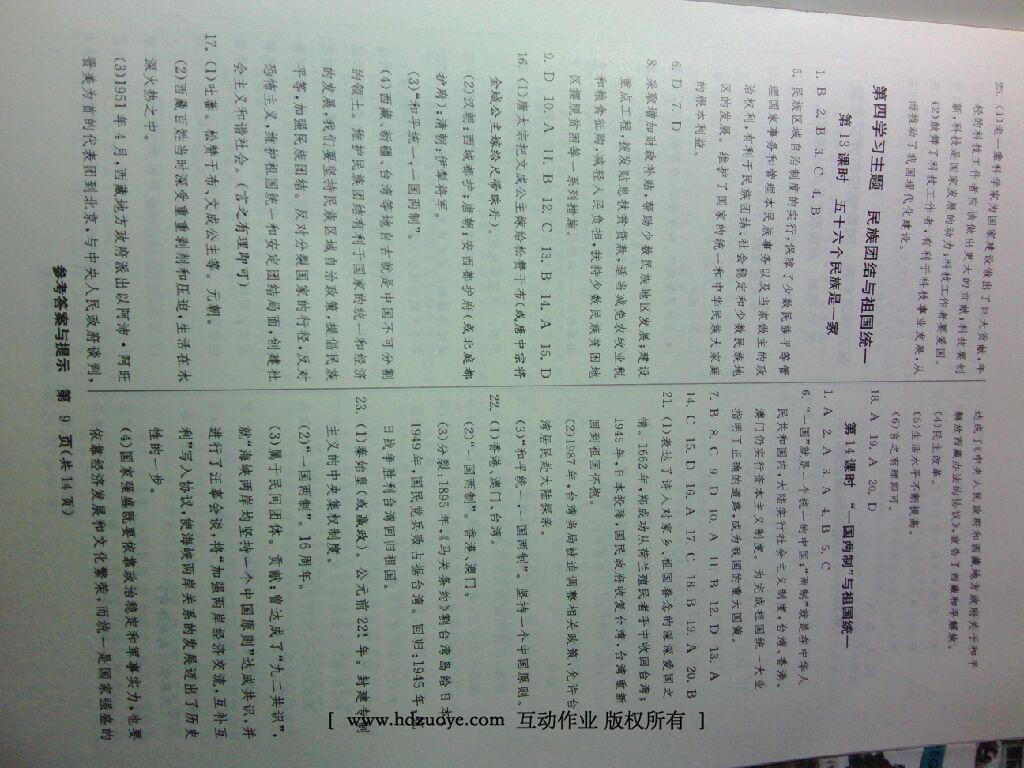 25. (1)老一辈科学家为国家建设做出了巨大贡献,年
经的科技工作者应该做出更大的贡献;科技要创
新,科技是国家发展的动力;科技工作者要爱国。
(2)鼓舞了科技工作者,有利于科技事业发展,从
而推动了我国现代化建设。
第四学习主题 民族团结与祖国统一
第13课时 五十六个民族是一家
1. B 2. B 3. C 4. B
5. 民族区域自治制度的实行,保障了少数民族平等管
理国家事务和管理本民族事务以及当家做主的政
治权利,有利于民族团结、社会稳定和少数民族地
区的发展。维护了国家的统一和中华民族大家庭
的根本利益。
6. D 7. D
8. 采取增加财政补贴,帮助少数民族地区发展;建设
重点工程,拨发贴息扶贫贷款,适当减免农牧业税
和粮食征购,减轻人民负担,扶持少数民族贫困地
区摆脱贫困等一系列措施。
9. D 10. A 11. B 12. C 13. B 14. A 15. D
16. (1)唐太宗把文成公主嫁给松赞干布(或唐中宗将
金城公主嫁给尺带珠丹)。
(2)汉朝:西域都护;唐朝:安西都护府(或北庭都
护府);清朝:伊犁将军。
(3)“和平统一、一国两制”。
(4)西藏、新疆、台湾等地自古就是中国不可分割
的领土。维护民族团结有利于国家的统一和经济
的发展,我们要坚持民族区域自治政策,提倡民族
平等,加强民族团结。反对分裂国家的行径,反对
恐怖主义,维护祖国统一和安定团结局面,创建社
会主义和谐社会。(言之有理即可)
17. (1)吐蕃。松赞干布、文成公主等。元朝。
(2)西藏百姓当时深受重重剥削和压迫,生活在水
深火热之中。
(3)1951年4月,西藏地方政府派出以阿沛·阿旺
晋美为首的代表团到北京,与中央人民政府谈判,
达成了《中央人民政府和西藏地方政府关于和平
解放西藏办法的协议》,宣告了西藏和平解放。
(4)民主改革。
(5)生活水平不断提高。
(6)言之有理即可。
18. A 19. A 20. D
第14课时 “一国两制”与祖国统一
1. A 2. A 3. A 4. B 5. C
6. “一国”就是一个统一的中国;“两制”就是在中华人
民共和国内大陆实行社会主义制度,台湾、香港、
澳门仍实行资本主义制度。为完成祖国统一大业
指明了正确的道路,成为我国的重大国策。
7. B 8. C 9. D 10. A 11. B 12. D 13. A
14. C 15. D 16. A 17. C 18. B 19. A 20. B
21. (1)表达了诗人对家乡、祖国眷念的深深爱国之
情。1662年,郑成功从荷兰殖民者手中收回台湾;
1945年,日本投降,国民政府收复台湾,台湾重新
回到祖国怀抱。
(2)1987年,台湾当局被迫调整相关政策,允许台
湾居民赴大陆探亲。
(3)“和平统一、一国两制”。坚持一个中国原则。
22. (1)香港、澳门、台湾。
(2)“一国两制”。香港、澳门。
(3)分裂:1895年,《马关条约》割台湾岛给日本;
1949年,国民党兵败占据台湾。回归:1945年
日战争胜利台湾回归祖国。
23. (1)秦始皇(或嬴政)。公元前221年。封建专制
主义的中央集权制度。
(2)“一国两制”。16周年。
(3)属于民间团体。贡献:曾达成了“九二共识”,
就“海峡两岸均坚持一个中国原则”达成共识,并
进行了汪辜会谈,将“加强两岸经济交流,互补互
利”写入协议,使海峡两岸关系的发展迈出了历史
性的一步。
(4)国家强盛既要依靠政治稳定和军事实力,也要
依靠经济发展和文化繁荣;而统一是国家强盛的
参考答案与提示 第9页(共14页)
[ www.hdzuoye.com 互动作业 版权所有 ]